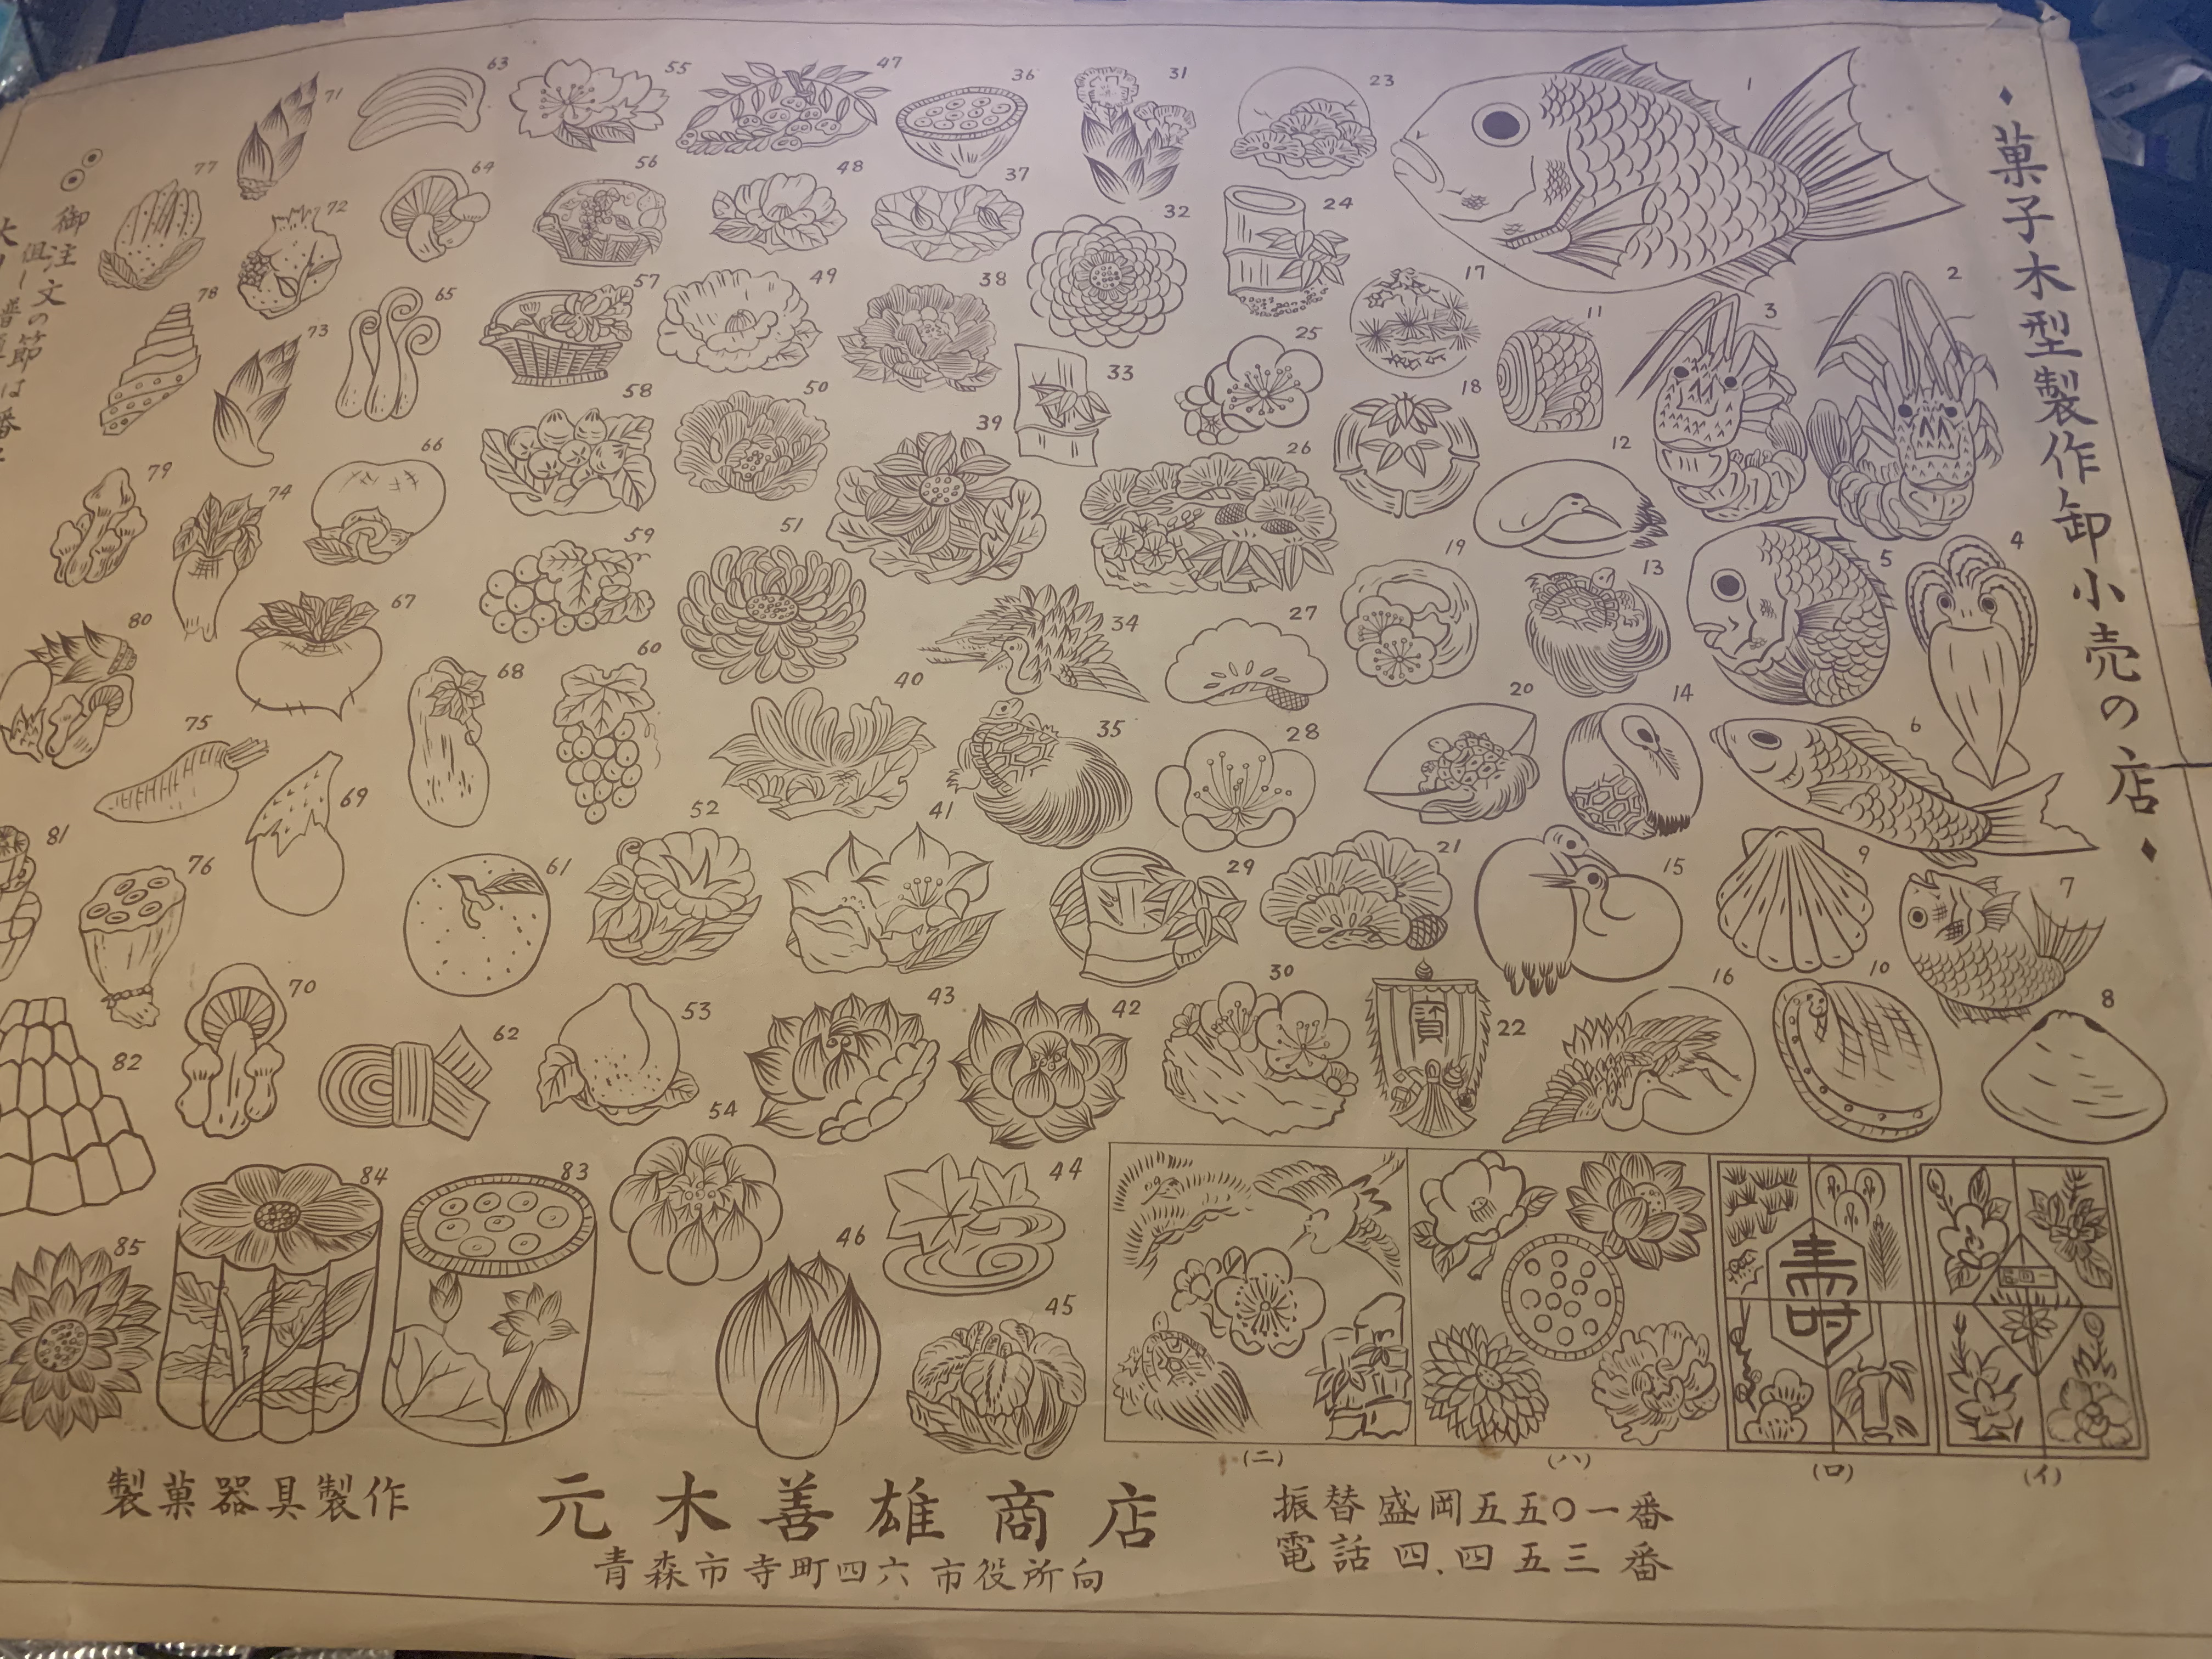 菓子木型製作卸小売の店
1
2
3
4
5
6
7
8
9
10
11
12
13
14
15
16
17
18
19
20
21
22
寳
23
24
25
26
27
28
29
30
31
32
33
34
35
36
37
38
39
40
41
42
43
44
45
46
47
48
49
50
51
52
53
54
55
56
57
58
59
60
61
62
63
64
65
66
67
68
69
70
71
72
73
74
75
76
77
78
79
80
81
82
83
84
85
壽
(イ)
(ロ)
(ハ)
(ニ)
御注文の節は番
製菓器具製作
元木善雄商店
青森市寺町四六 市役所向
振替盛岡五五〇一番
電話四.四五三番